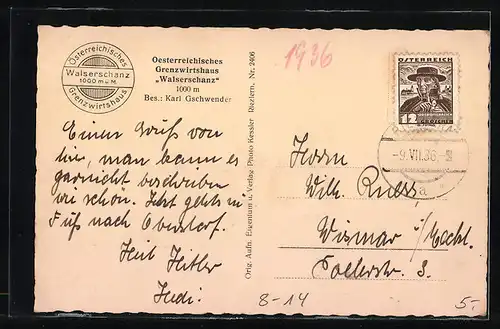 Österreichisches
Walserschanz
1000 m ü. M.
Grenzwirtshaus
Oesterreichisches
Grenzwirtshaus
„Walserschanz"
1000 m
Bes.: Karl Gschwender
1936
ÖSTERREICH
12
GROSCHEN
-9.VII.36
Orig. Aufn. Eigentum u. Verlag Photo Kessler Riezlern. Nr. 2406
Einen Gruß von
hier, man kann es
garnicht beschreiben
wie schön. Jetzt gehts zu
Fuß nach Oberstorf.
Heil Hitler
Hedi.
Herrn
Wilh.
Wismar i/Meckl.
8-14
5.-